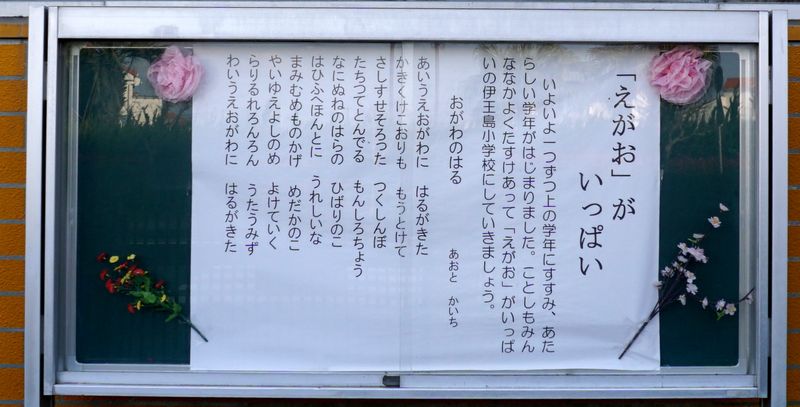 「えがお」が
いっぱい
いよいよ一つずつ上の学年にすすみ、あた
らしい学年がはじまりました。ことしもみん
ななかよくたすけあって「えがお」がいっぱ
いの伊王島小学校にしていきましょう。
おがわのはる
あおと かいち
あいうえおがわに はるがきた
かきくけこおりも もうとけて
さしすせそろった つくしんぼ
たちつてとんでる もんしろちょう
なにぬねのはらの ひばりのこ
はひふへほんとに うれしいな
まみむめものかげ めだかのこ
やいゆえよしのめ よけていく
らりるれろんろん うたうみず
わいうえおがわに はるがきた